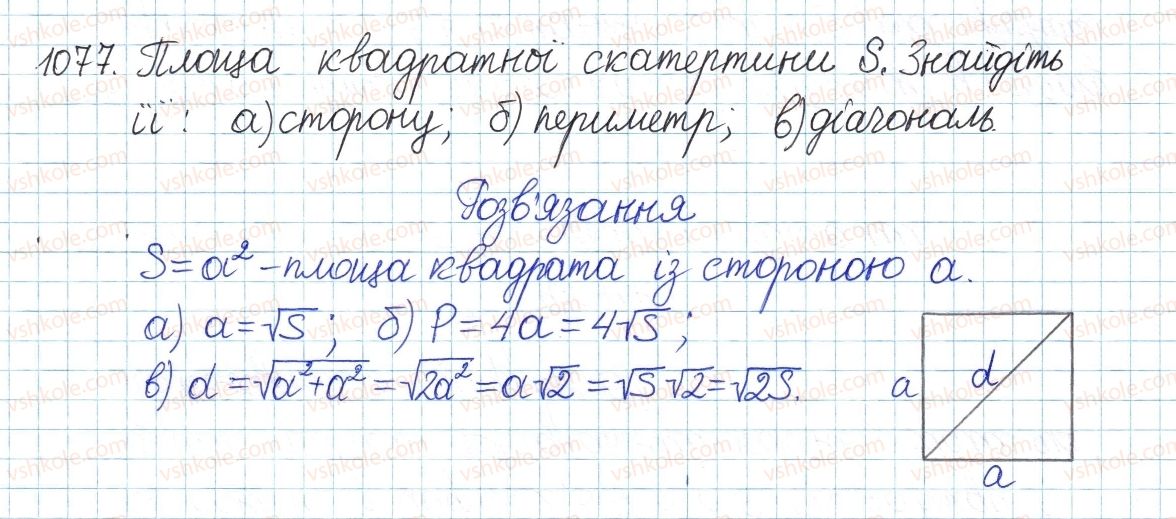 1077. Площа квадратної скатертини S. Знайдіть
її: а) сторону; б) периметр; в) діагональ.
Розв'язання
S = a² – площа квадрата із стороною a.
а) a = √S; б) P = 4a = 4√S;
в) d = √(a²+a²) = √(2a²) = a√2 = √S √2 = √2S.
d
a
a
vshkole.com